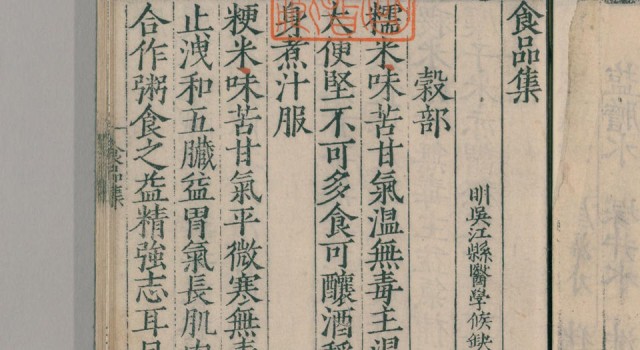 食品集
明吳江縣醫學候缺
穀部
糯米味苦甘氣溫無毒主溫
大便堅不可多食可釀酒
身煮汁服
粳米味苦甘氣平微寒無毒
止洩和五臟益胃氣長肌
合作粥食之益精強志耳目
食品集